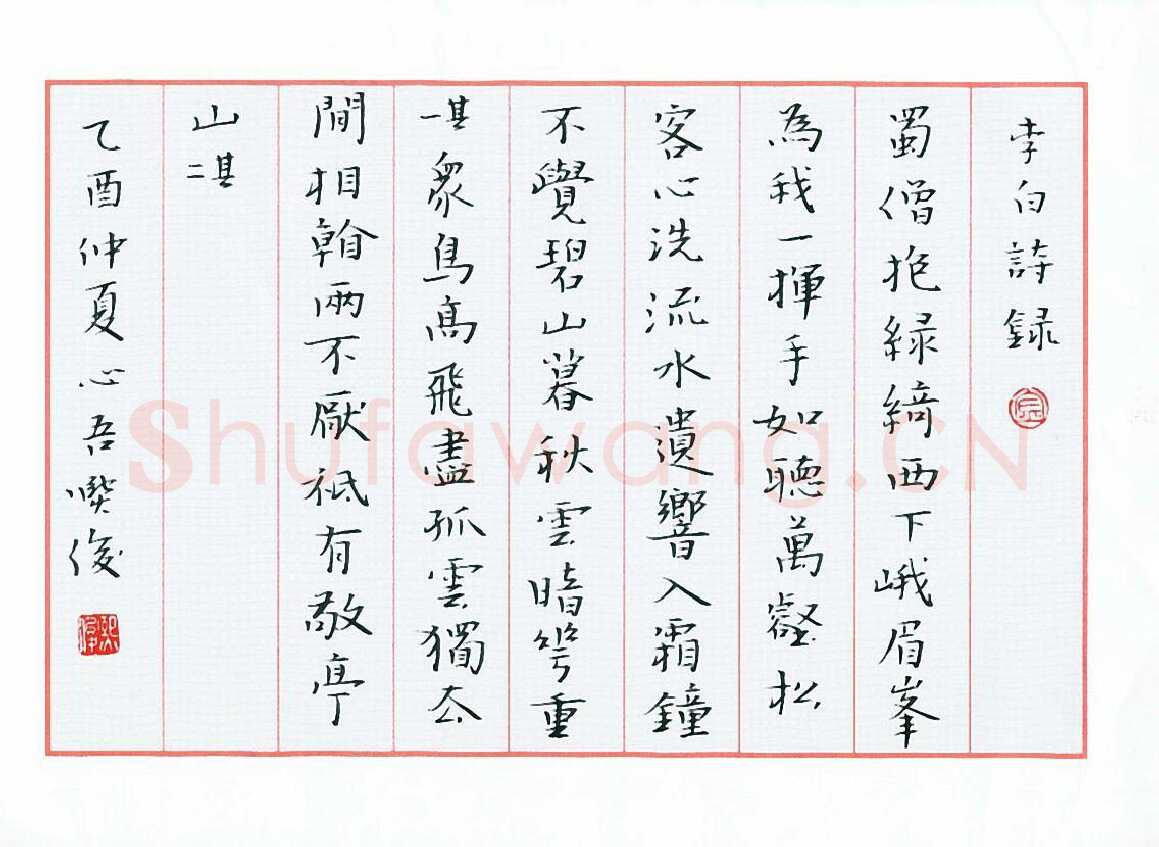 李白詩録
蜀僧抱緑綺西下峨眉峯
為我一揮手如聽萬壑松
客心洗流水遺響入霜鐘
不覺碧山暮秋雲暗幾重
其一衆鳥高飛盡孤雲獨去
閒相看兩不厭祇有敬亭
山其二
乙酉仲夏心吾俊
Shufawang.CN